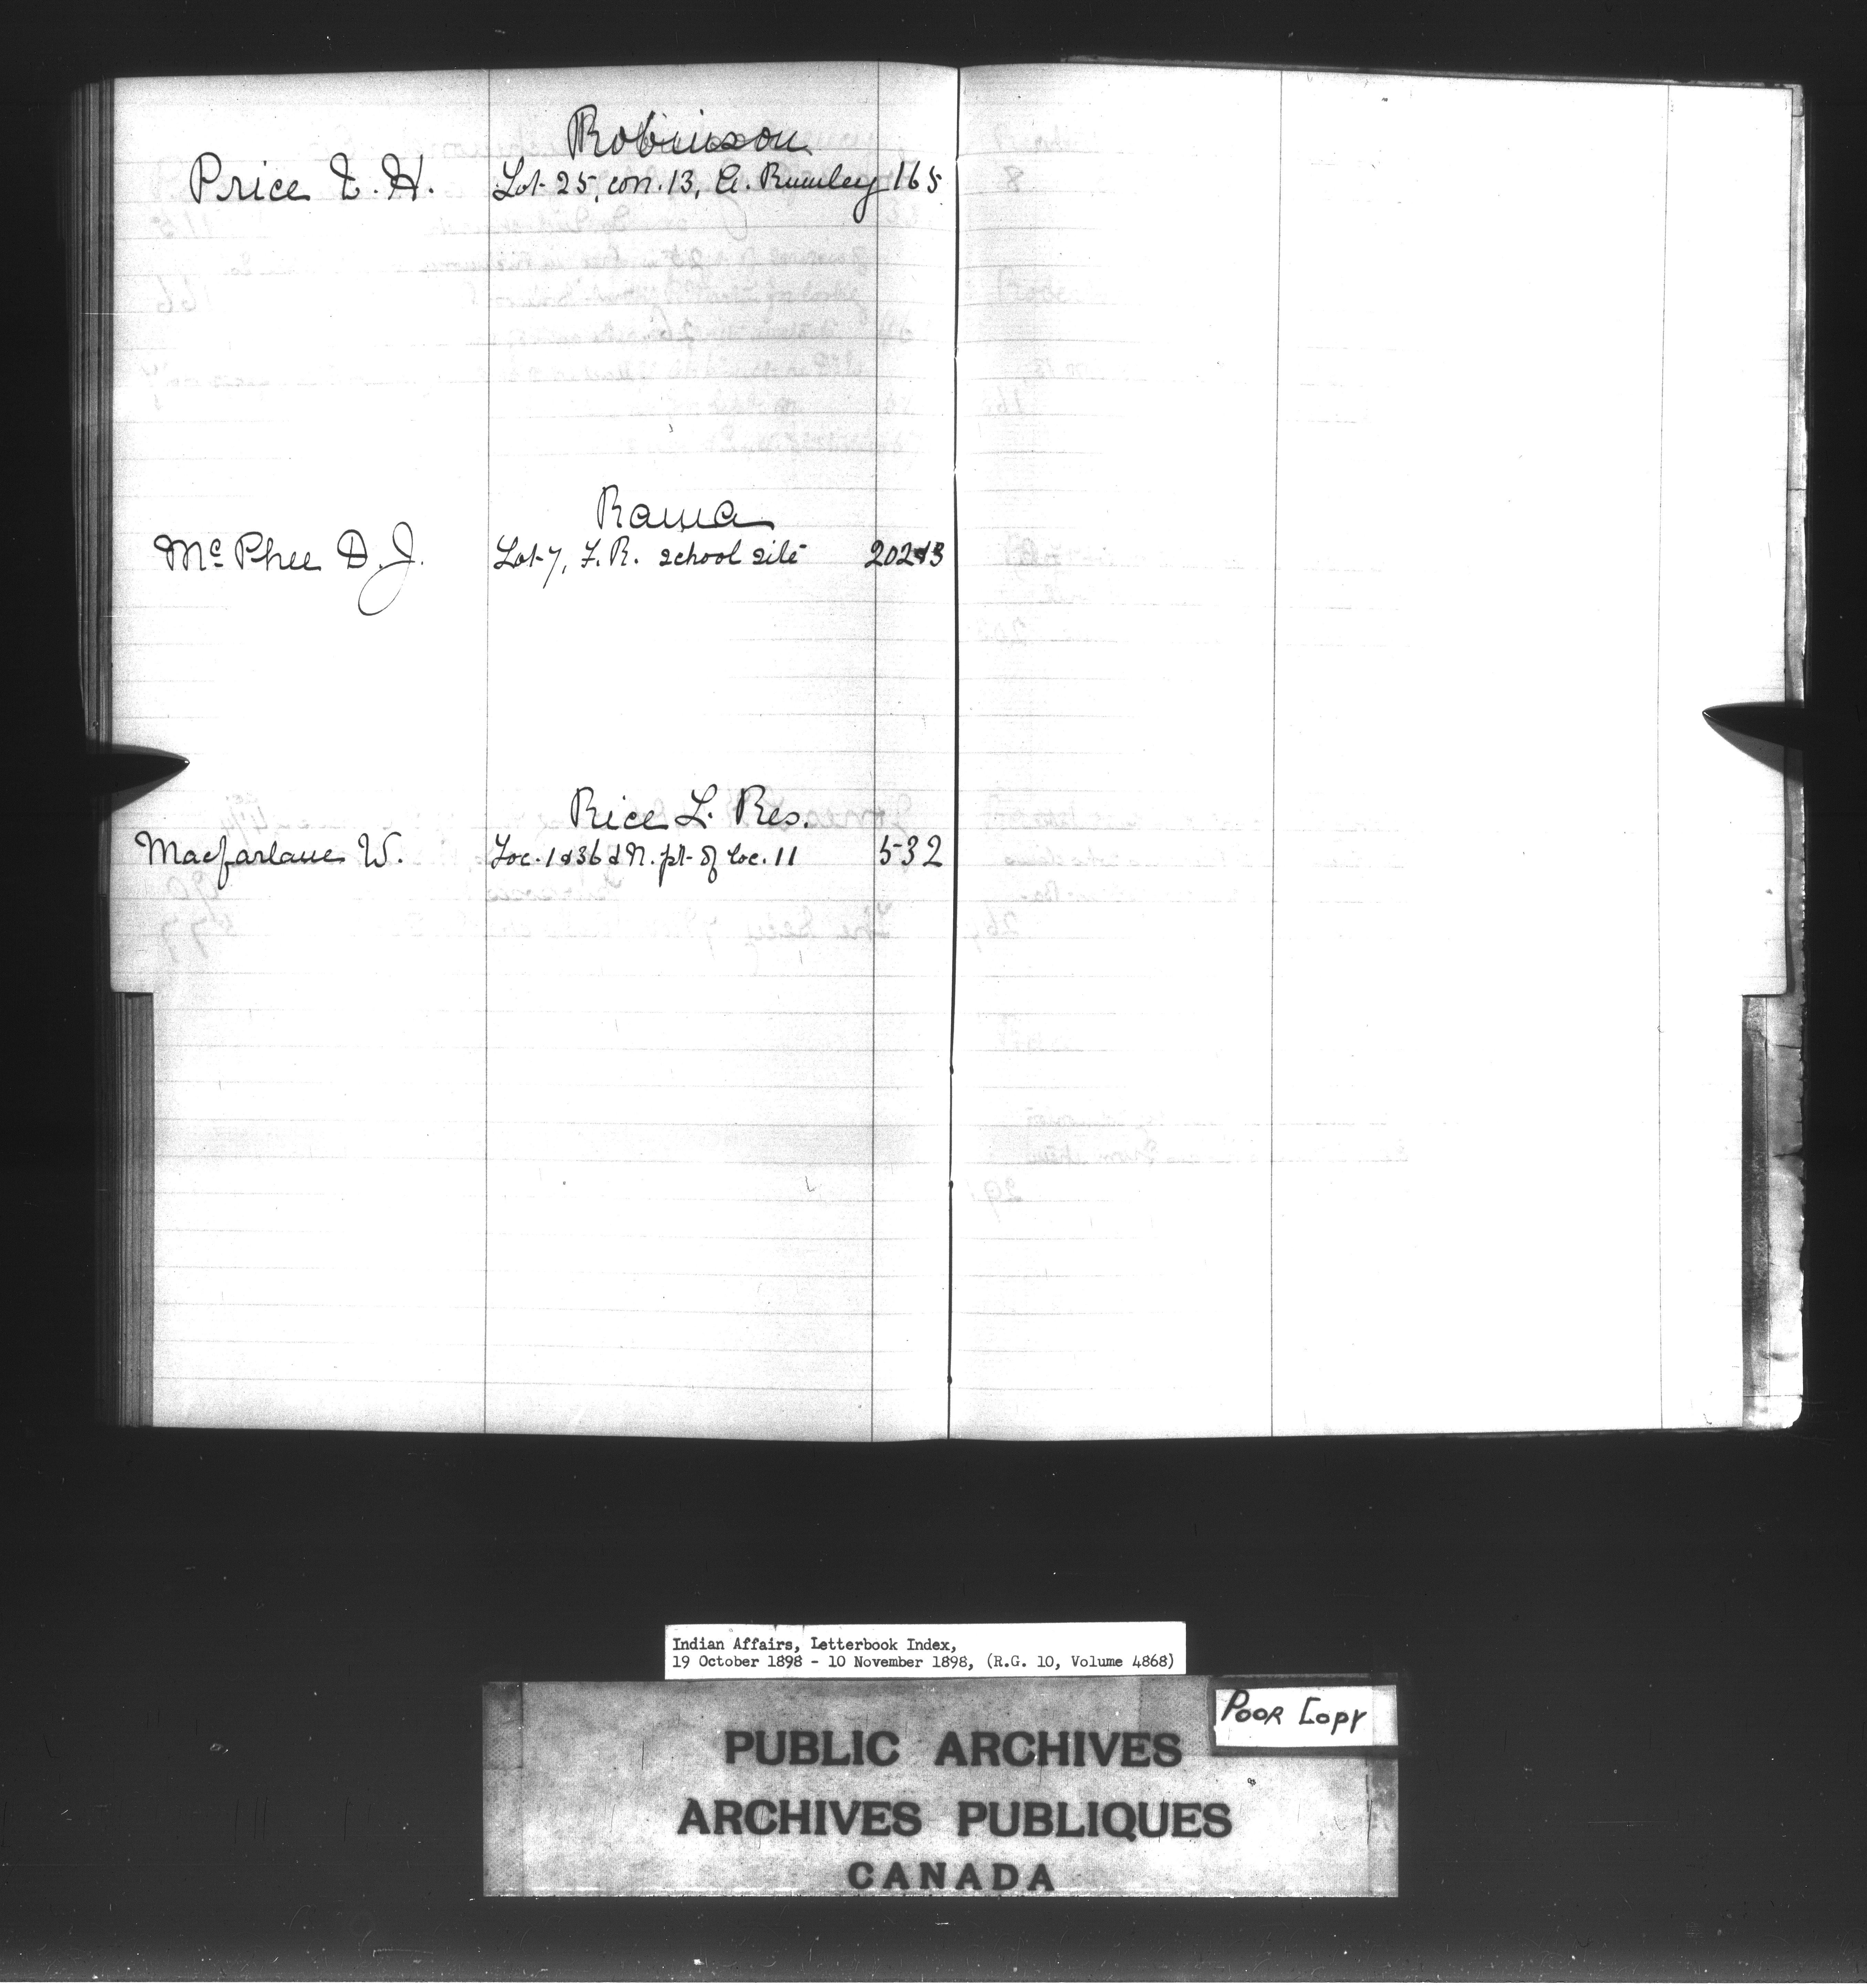 Robinson
Price E. H. Lot 25, con. 13, A. Rumley 165
Rama
Mc Phee D. J. Lot 7, F. R. school site 202&3
Rice L. Res.
Macfarlane W. Loc. 1 & 36 & N. pt. of loc. 11 532
Indian Affairs, Letterbook Index,
19 October 1898 - 10 November 1898, (R.G. 10, Volume 4868)
POOR COPY
PUBLIC ARCHIVES
ARCHIVES PUBLIQUES
CANADA